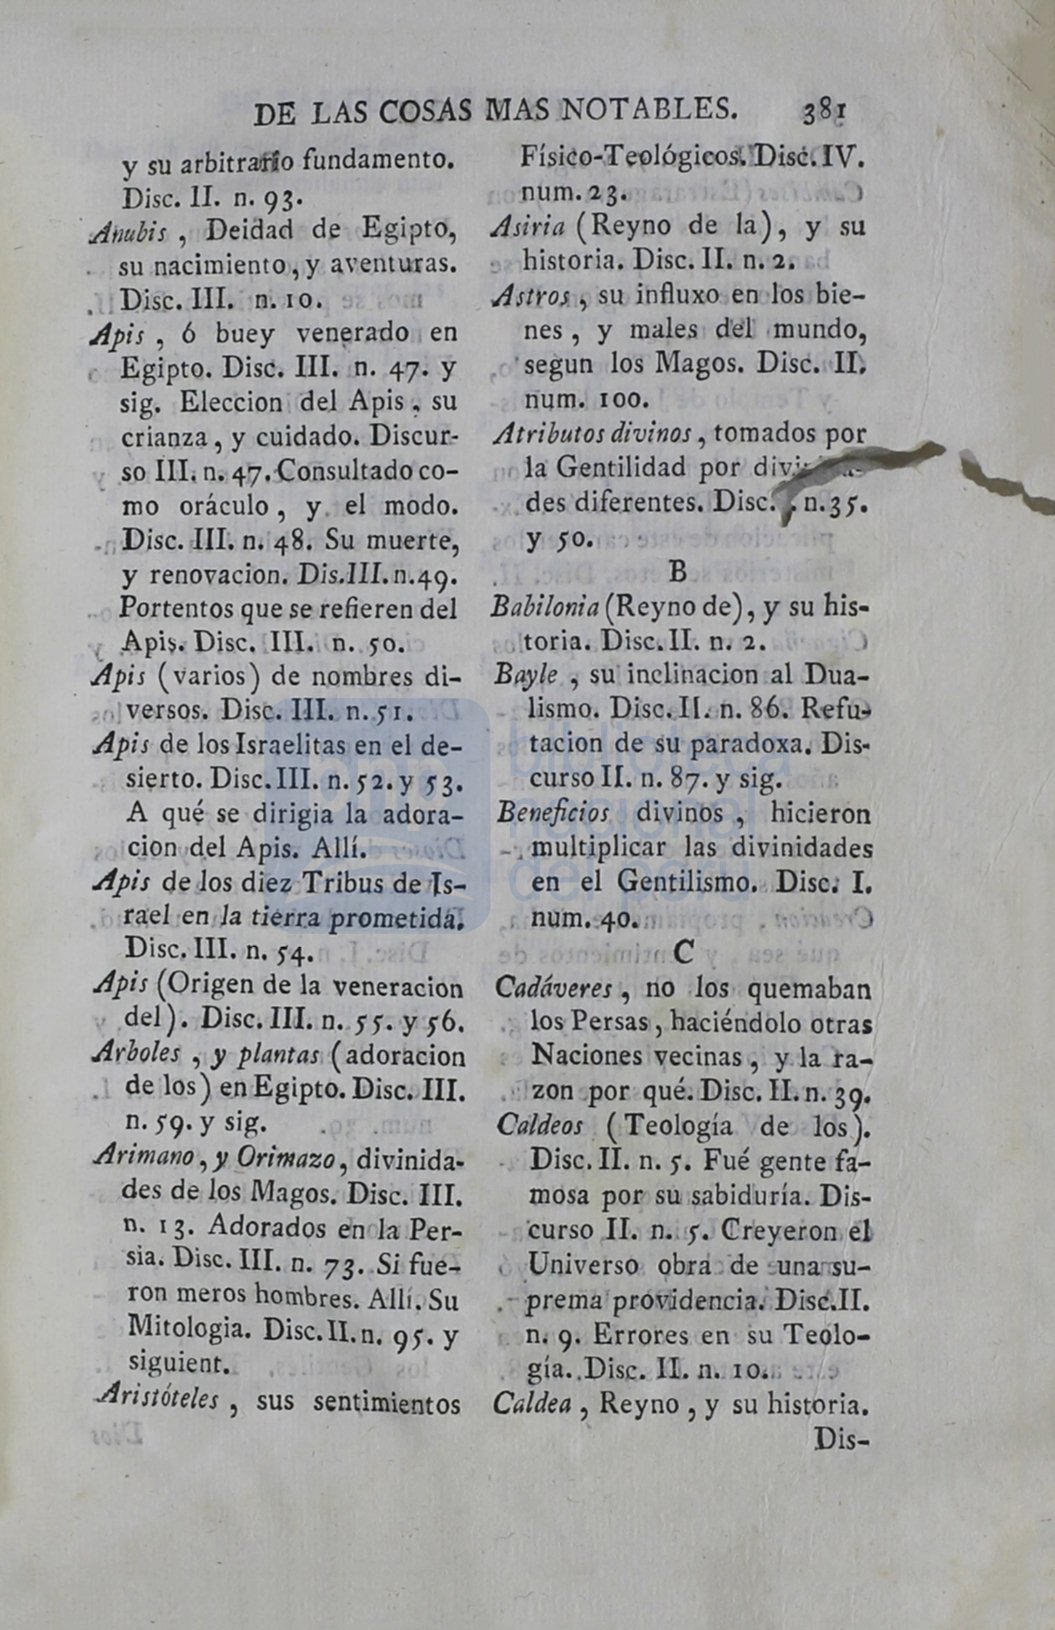 DE LAS COSAS MAS NOTABLES. 381
y su arbitrario fundamento.
Disc. II. n. 93.
Anubis , Deidad de Egipto,
su nacimiento, y aventuras.
Disc. III. n. 10.
Apis , ó buey venerado en
Egipto. Disc. III. n. 47. y
sig. Eleccion del Apis , su
crianza, y cuidado. Discur-
so III. n. 47. Consultado co-
mo oráculo , y el modo.
Disc. III. n. 48. Su muerte,
y renovacion. Dis.III. n.49.
Portentos que se refieren del
Apis. Disc. III. n. 50.
Apis (varios) de nombres di-
versos. Disc. III. n. 51.
Apis de los Israelitas en el de-
sierto. Disc. III. n. 52. y 53.
A qué se dirigia la adora-
cion del Apis. Allí.
Apis de los diez Tribus de Is-
rael en la tierra prometida.
Disc. III. n. 54.
Apis (Origen de la veneracion
del). Disc. III. n. 55. y 56.
Arboles , y plantas (adoracion
de los) en Egipto. Disc. III.
n. 59. y sig.
Arimano, y Orimazo, divinida-
des de los Magos. Disc. III.
n. 13. Adorados en la Per-
sia. Disc. III. n. 73. Si fue-
ron meros hombres. Allí. Su
Mitologia. Disc. II. n. 95. y
siguient.
Aristóteles , sus sentimientos
Físico-Teológicos. Disc. IV.
num. 23.
Asiria (Reyno de la), y su
historia. Disc. II. n. 2.
Astros , su influxo en los bie-
nes , y males del mundo,
segun los Magos. Disc. II.
num. 100.
Atributos divinos, tomados por
la Gentilidad por
des diferentes. Disc. n.35.
y 50.
B
Babilonia (Reyno de), y su his-
toria. Disc. II. n. 2.
Bayle , su inclinacion al Dua-
lismo. Disc. II. n. 86. Refu-
tacion de su paradoxa. Dis-
curso II. n. 87. y sig.
Beneficios divinos , hicieron
multiplicar las divinidades
en el Gentilismo. Disc. I.
num. 40.
C
Cadáveres , no los quemaban
los Persas, haciéndolo otras
Naciones vecinas , y la ra-
zon por qué. Disc. II. n. 39.
Caldeos (Teología de los).
Disc. II. n. 5. Fué gente fa-
mosa por su sabiduría. Dis-
curso II. n. 5. Creyeron el
Universo obra de una su-
prema providencia. Disc. II.
n. 9. Errores en su Teolo-
gía. Disc. II. n. 10.
Caldea , Reyno , y su historia.
Dis-
bnp
biblioteca
nacional
del perú